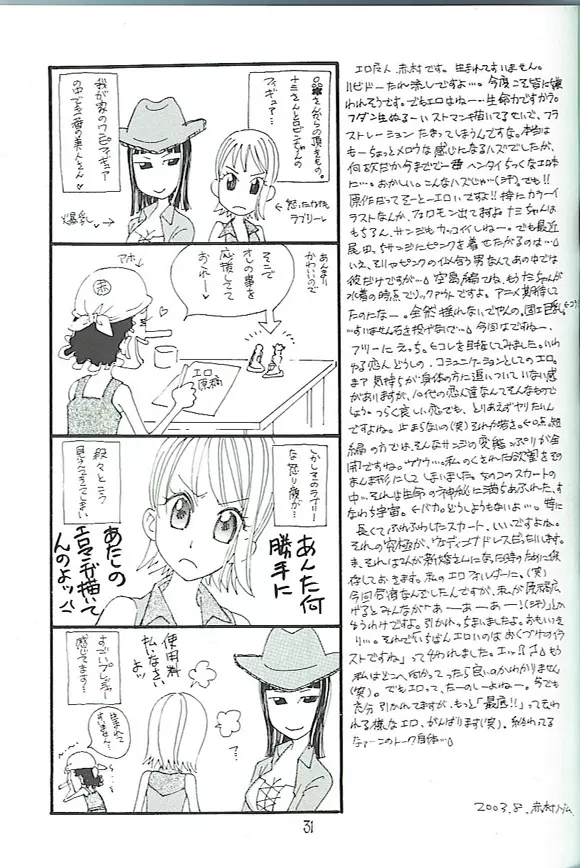 さんからの頂きもの。
ナミさんとロビンちゃんの
フィギュア…
怒ったカオも
ラブリー
我が家のワンピフィギュア
の中でも一番の美人さん♡
爆乳し♡
あんまり
かわいいので
そこで
オレの事を
応援してて
おくれー♡
アホ
赤
エロ
原稿
しかしそのラブリー
な怒り顔が…
段々とこう
見えてきてしまい
あんた何
勝手に
あたしの
エロマンガ描いて
んのよッ
使用料
払いなさい
よッ
すごいプレッシャー
感じてます…
生まれて
すいません…
31
エロ魔人、赤村です。生まれてすいません。
リビドーたれ流しですよ…。今度こそ皆に嫌
われそうです。でもエロはねー…生命力ですから。
フダン生ぬるーいストマンキ描いてるせいで、フラ
ストレーション たまってしまうんですな。本当は
もーちょっとメロウな感じになるハズでしたが、
何故だか今までで一番 ヘンタイちっくなエロ本
に…。おかしい。こんなハズじゃ…(汗)。でも!!
原作だってそーとーエロいですよ!! 特にカラーイ
ラストなんか、フェロモン出てますよ ナミちゃんは
もちろん、サンジもカッコイイしねー。でも最近
尾田、サンジにピンクを着せたがるのは…
いえ、そりゃピンクの似合う男なんてあの中では
彼だけですが…
空島編でね、もうナミちゃんが
水着の時点でノックアウトですよ。アニメ期待して
たのになー。全然揺れないでやんの、
…すいません石を投げないで…
今回はですねー、
フツーにえっち。をコレを目指してみました。いわ
ゆる恋人どうしの、コミュニケーションとしてのエロ。
まア気持ちが身体の方に追いついていない感
がありますが、10代の恋人達なんてそんなもので
しょう。つらく哀しい恋でも、とりあえずヤりたいん
ですよね。止まらないの(笑)それが若さ。
編の方では、そんなサンジの変態っぷりが全
開ですね。ウウウ…私のくされた欲望をその
まんま形にしてしまいました。女のコのスカートの
中…それは生命の神秘に満ちあふれた、す
なわち宇宙。←バカ。どうしようもないよ…。特に
長くてふわふわしたスカート、いいですよね。
それの究極が、ウエディングドレスだったりします。
ま、それは2人が新婚さんになった時のために保
存しておきます。私のエロフィルダーに。(笑)
今回合宿なんでしたんですが、私が原稿広
げるとみんなが「あーあーあー!(汗)」とか
ゆうわけですよ。引かれっちまいましたよ。おもいっき
り…。それで「いちばんエロいのはおくづけのイラ
ストですね」って云われました。エッ!?
もう
私はどこへ向かってったら良いのかわかりません
(笑)。でもエロって、たーのしーよねー。今でも
充分 引かれてますが、もっと「最低!!」って云わ
れる様なエロ、がんばります(笑)。終わってる
なァーこのトーク自体…
2003.8.赤村